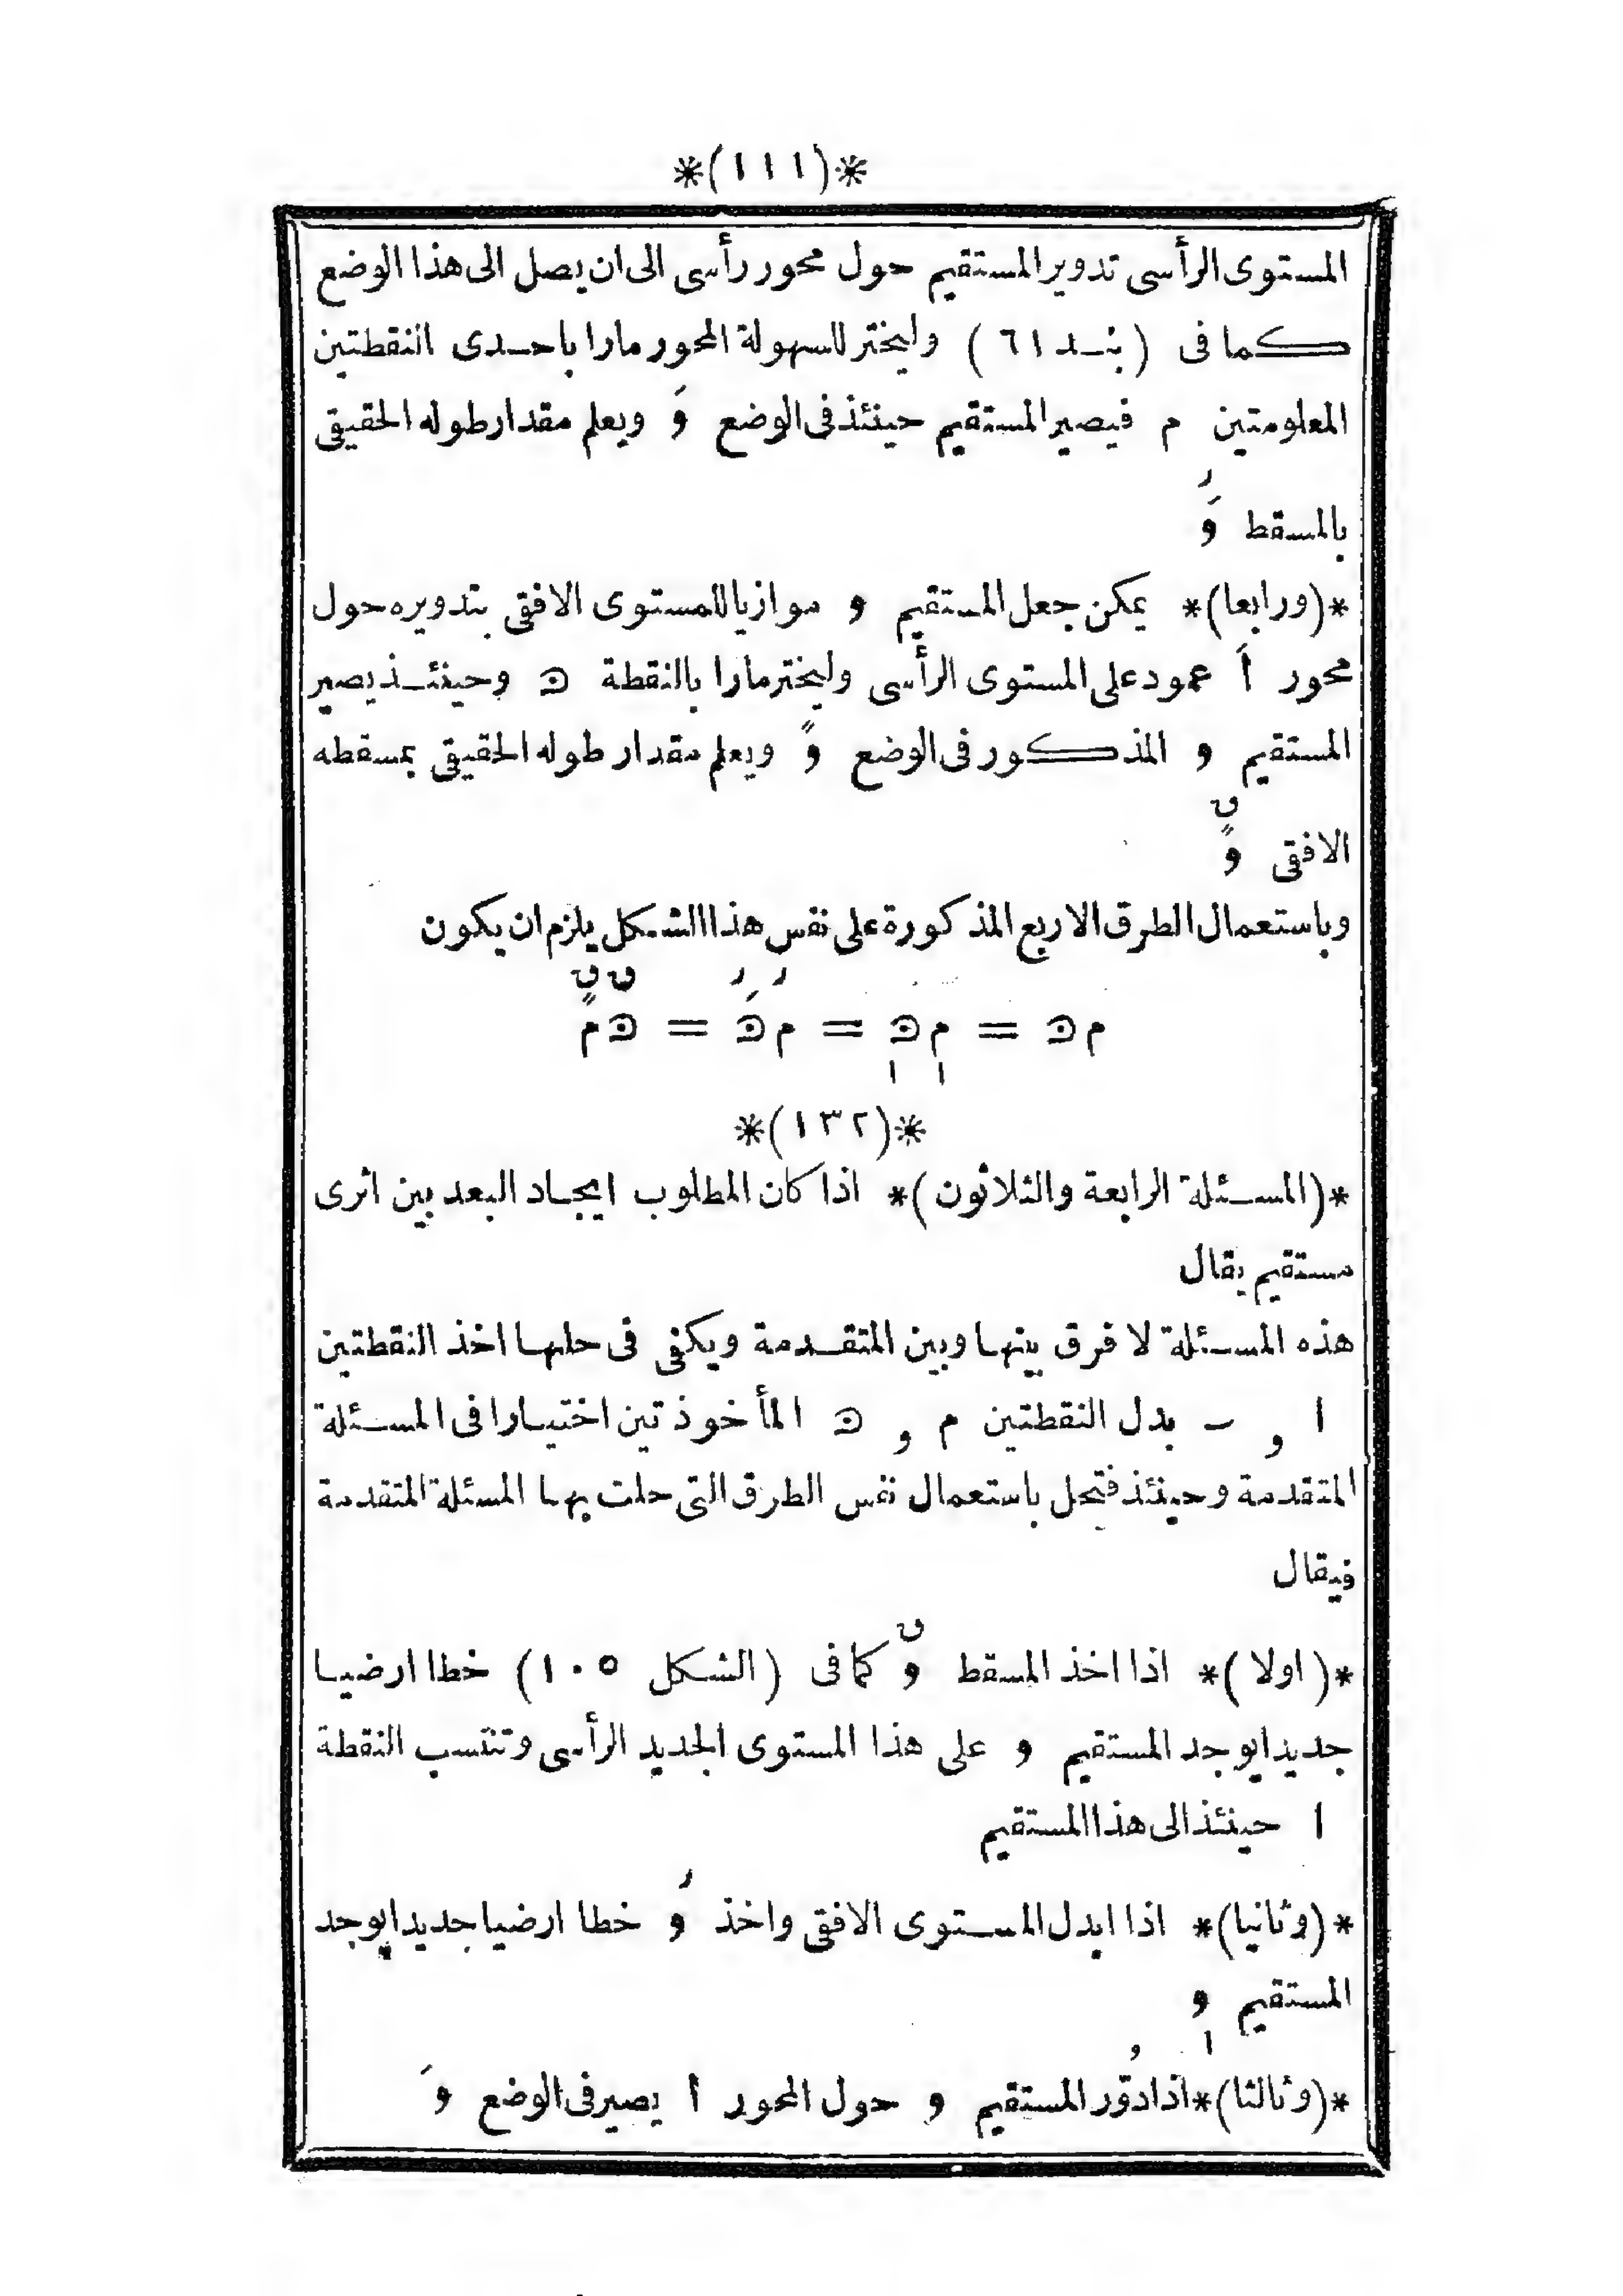 *(١١١)*
المستوى الرأسى تدوير المستقيم حول محور رأسى الى ان يصل الى هذا الوضع
كما فى (بند ٦١) وليختر للسهولة المحور مارا باحدى النقطتين
المعلومتين م فيصير المستقيم حينئذ فى الوضع وَ ويعلم مقدار طوله الحقيقى
بالمسقط وَر
*(ورابعا)* يمكن جعل المستقيم و موازيا للمستوى الافقى بتدويره حول
محور أَ عمود على المستوى الرأسى وليختر مارا بالنقطة ﬤ وحينئذ يصير
المستقيم و المذكور فى الوضع وً ويعلم مقدار طوله الحقيقى بمسقطه
الافقى وًں
وباستعمال الطرق الاربع المذكورة على نفس هذا الشكل يلزم ان يكون
= = =
*(١٣٢)*
*(المسئلة الرابعة والثلاثون)* اذا كان المطلوب ايجاد البعد بين اثرى
مستقيم يقال
هذه المسئلة لا فرق بينها وبين المتقدمة ويكفى فى حلها اخذ النقطتين
ا و ٮ بدل النقطتين م و ﬤ المأخوذتين اختيارا فى المسئلة
المتقدمة وحينئذ فتحل باستعمال نفس الطرق التى حلت بها المسئلة المتقدمة
فيقال
*(اولا)* اذا اخذ المسقط وں كما فى (الشكل ١٠٥) خطا ارضيا
جديدا يوجد المستقيم و على هذا المستوى الجديد الرأسى وتنتسب النقطة
ا حينئذ الى هذا المستقيم
*(وثانيا)* اذا ابدل المستوى الافقى واخذ ور خطا ارضيا جديدا يوجد
المستقيم و١
*(وثالثا)* اذا دوّر المستقيم و حول المحور أ يصير فى الوضع وَ